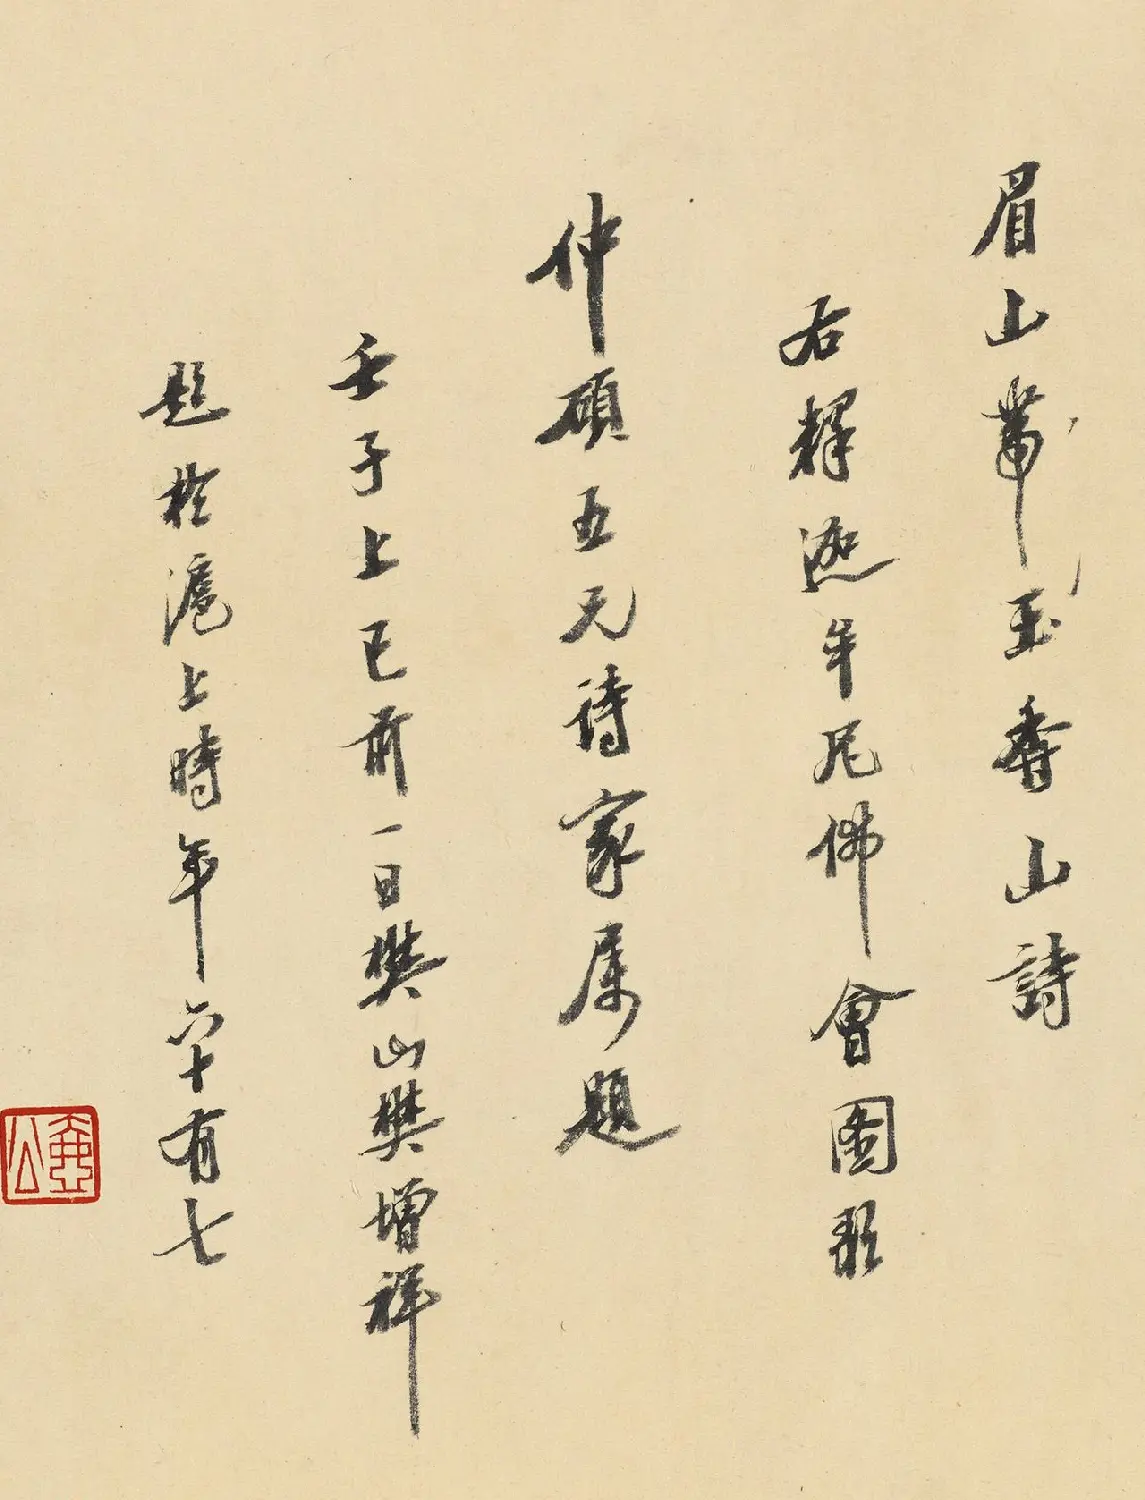 眉山帶玉香山詩
右釋迦牟尼佛會圖歌
仲碩五兄詩家屬題
壬子上巳前一日樊山樊增祥
題於滬上時年六十有七